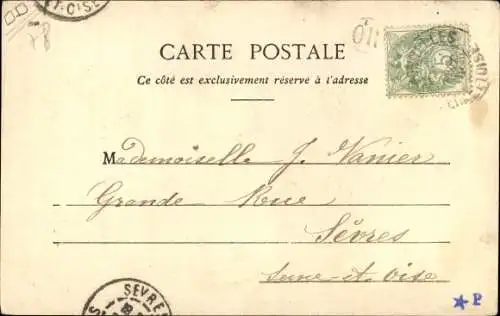 T-OISE
CARTE POSTALE
Ce côté est exclusivement réservé à l'adresse
Mademoiselle J. Vanier
Grande Rue
Sèvres
Seine-et-Oise
SEVRE
P